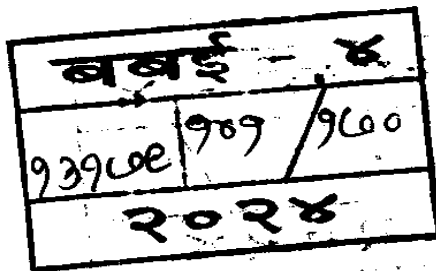 बबई - ४
१३१७९ १४१ / १७०
२०२४